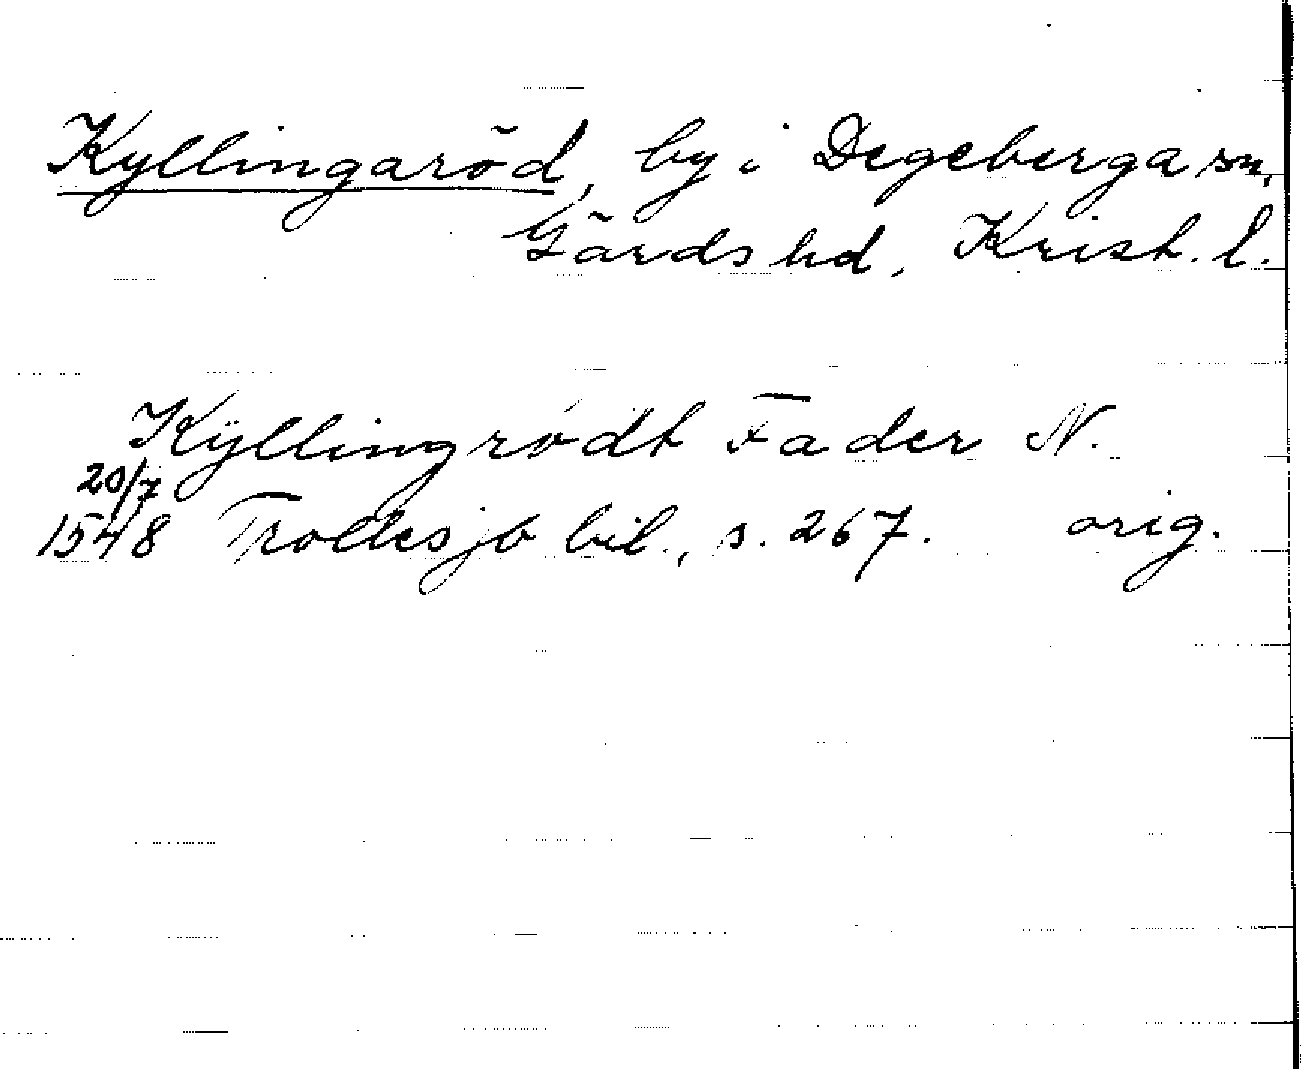 Kyllingaröd, by i Degeberga sn,
Gärds hd, Krist. l.
Kÿllingrødt Fader N.
20/7
1548 Trollesjö bil., s. 267. orig.